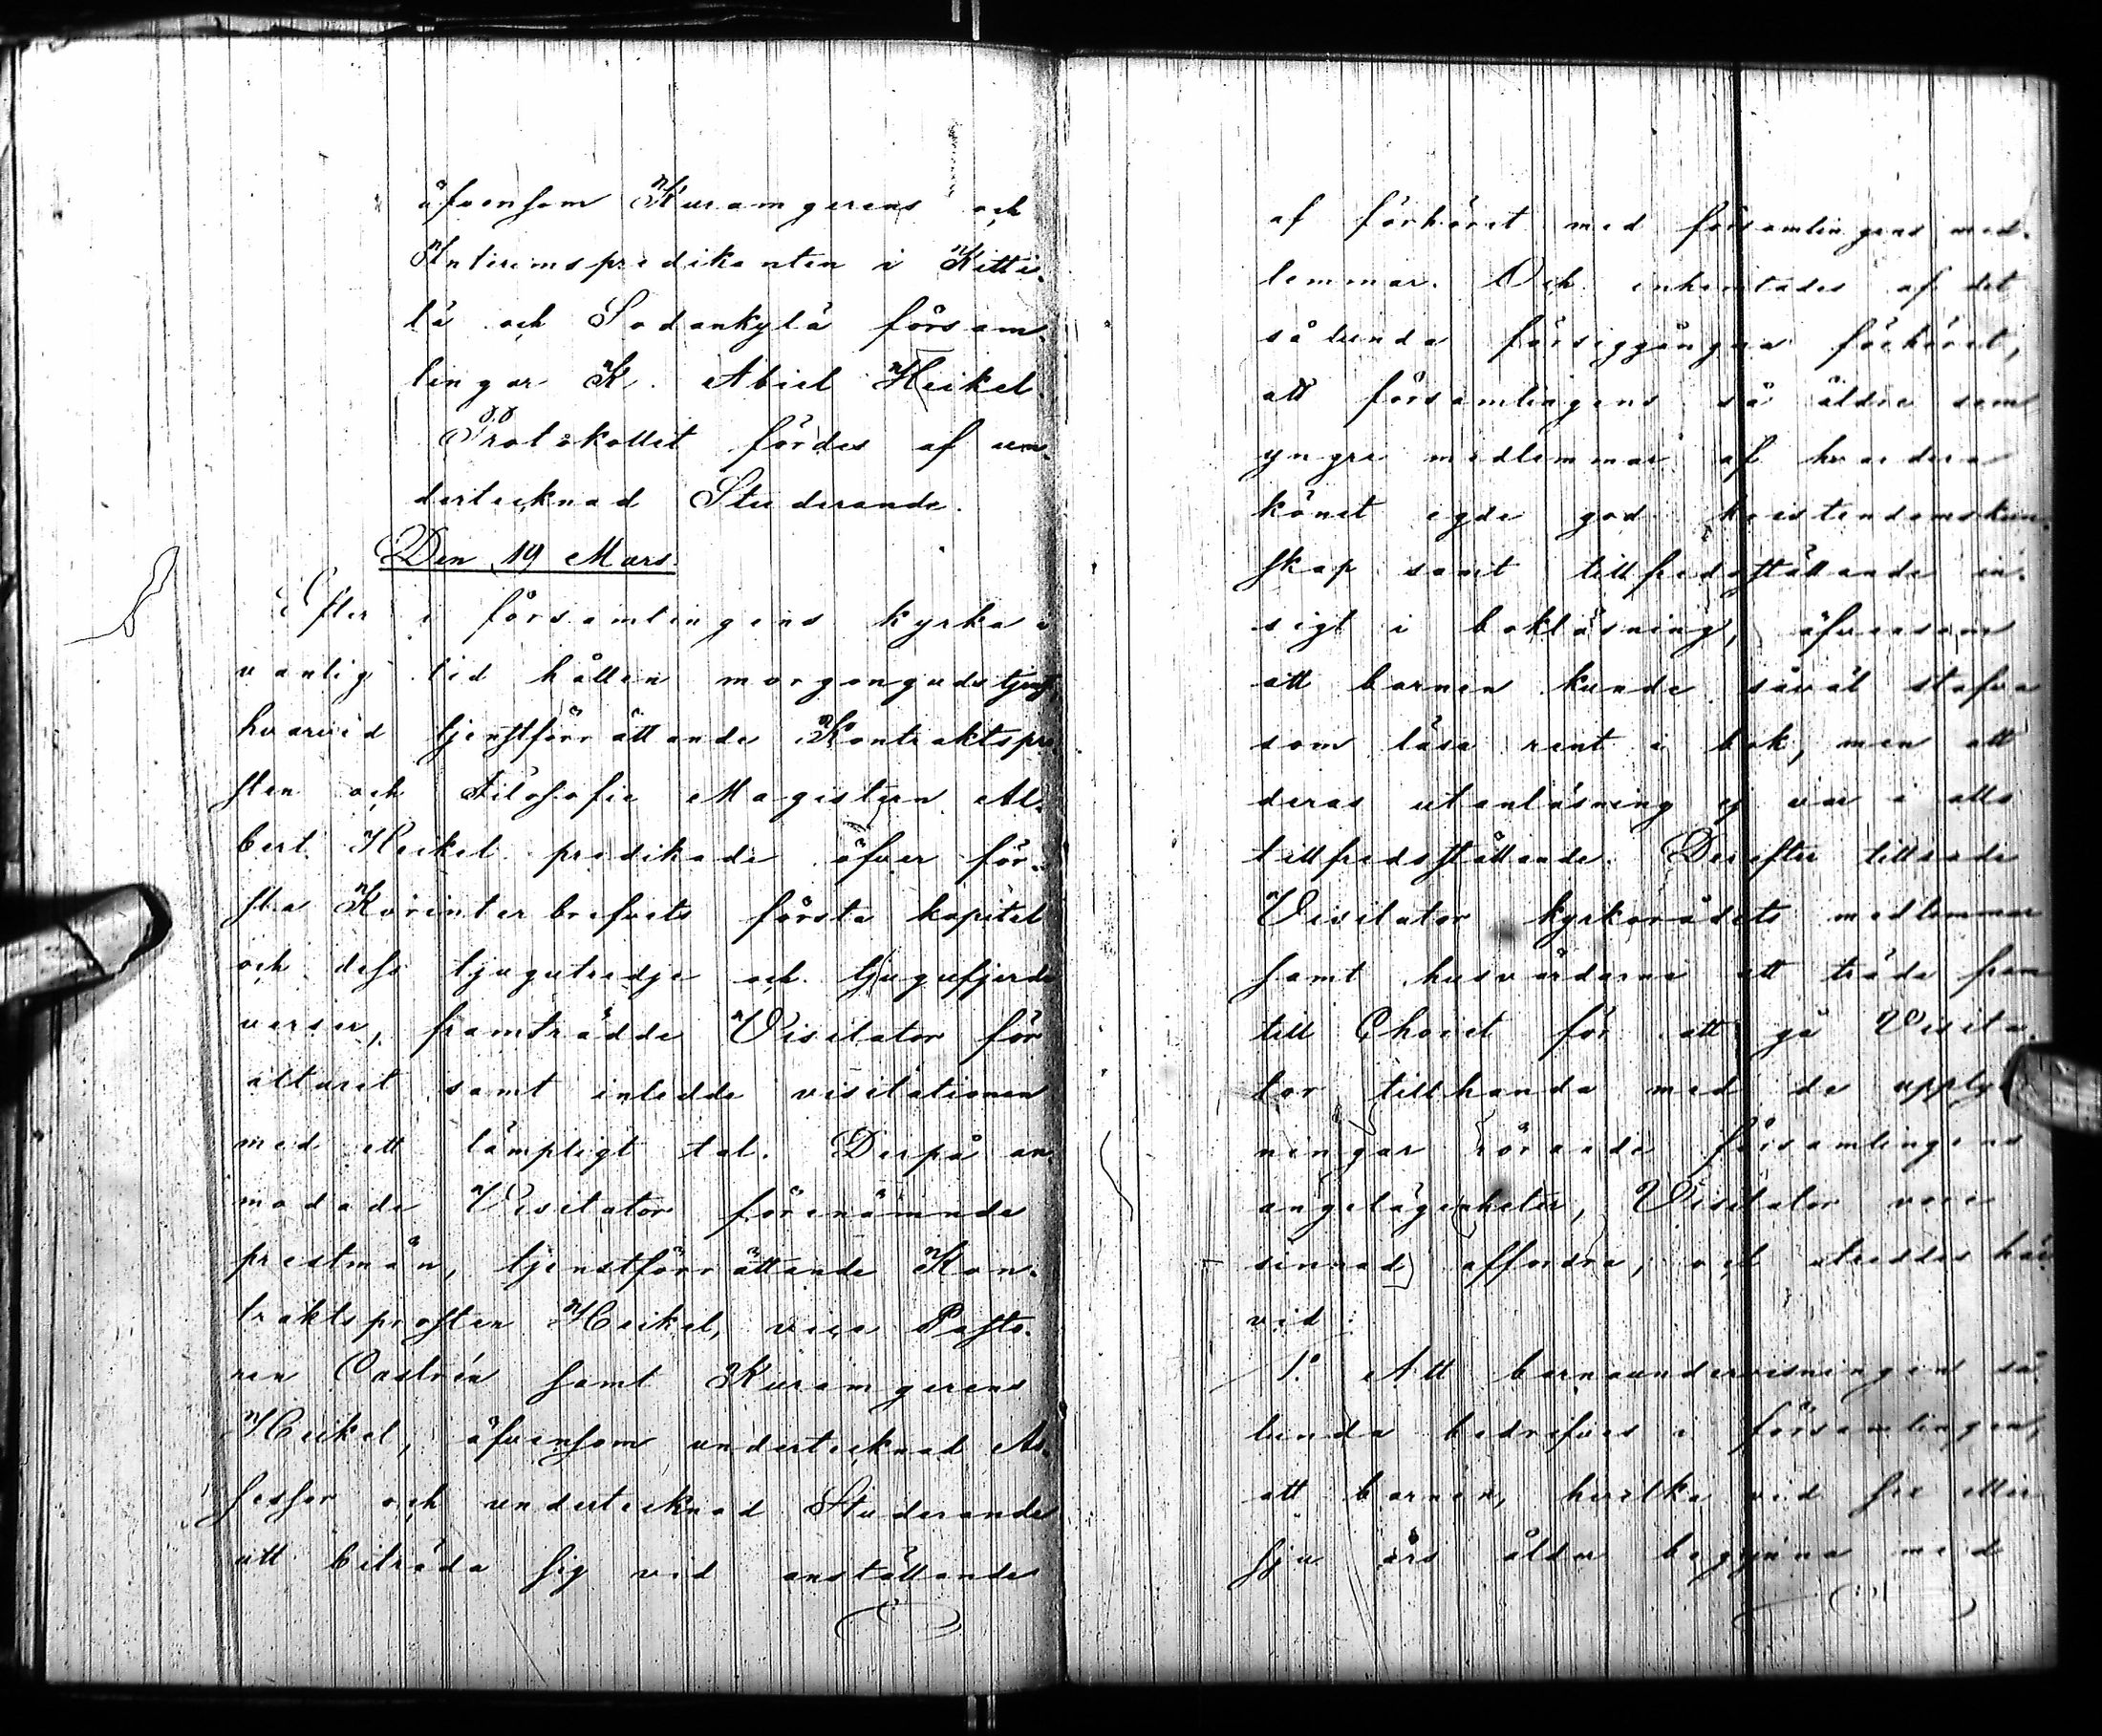 äfvensom Kuramgerens och
Interimspredikanten i Kitti-
lä och Sodankylä försam-
lingar K. Abiel Heikel.
Protokollet fördes af un-
dertecknad Studerande.
Den 19 Mars.
Efter i församlingens kyrka i
vanlig tid hållen morgongudstjenst,
hvarvid tjenstförrättande Kontraktspro
sten och Filosofie Magistern Al-
bert Heikel predikade öfver för-
sta Korinterbrefvets första kapitel
och dess tjugutredje och tjugufjerde
verser, framträdde Visitator för
altaret samt inledde visitationen
med ett lämpligt tal. Derpå an-
modade Visitator förenämnde
prestmän, tjenstförrättande Kon-
traktsprosten Heikel, vice Pasto-
ren Castrén samt Kuramgerens
Heikel, äfvensom undertecknad As-
sessor och undertecknad Studerande
att biträda sig vid anställande
af förhöret med församlingens med-
lemmar. Och inhemtades af det
sålunda försiggångna förhöret,
att församlingens så äldre som
yngre medlemmar af hvardera
könet egde god kristendomskun-
skap samt tillfredsställande in-
sigt i bokläsning, äfvensom
att barnen kunde såväl stafva
som läsa rent i bok, men att
deras utanläsning ej var i allo
tillfredsställande. Derefter tillsade
Visitator kyrkorådets medlemmar
samt husvärdarne att träda fram
till Choret för att gå Visita-
tor tillhanda med de upplys-
ningar rörande församlingens
angelägenheter, Visitator vore
sinnad affordra, och utreddes här-
vid:
1:o Att barnaundervisningen så-
lunda bedrefves i församlingen,
att barnen, hvilka vid sex eller
sju års ålder begynna med